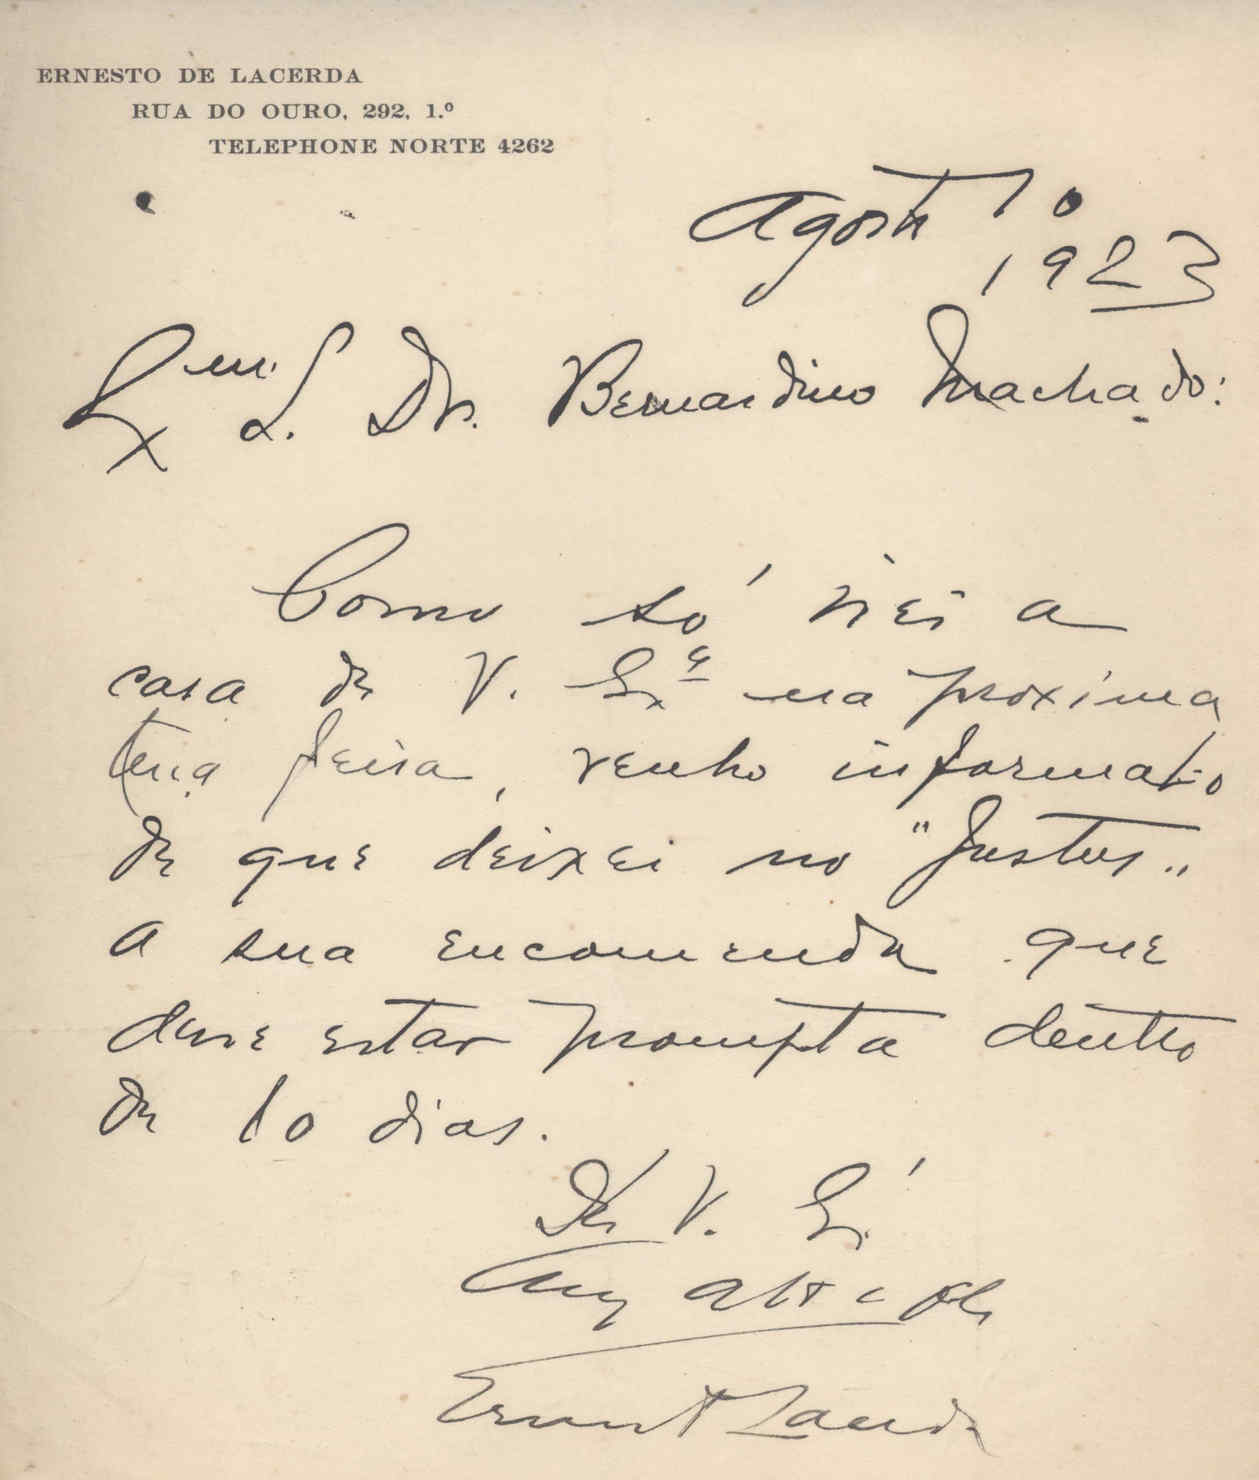 ERNESTO DE LACERDA
RUA DO OURO, 292, 1.º
TELEPHONE NORTE 4262
Agosto 1º
1923
Exm. S. Dr. Bernardino Machado:
Como só irei a
casa de V. Exª na proxima
terça feira, venho informal-o
de que deixei no "Justus"
a sua encomenda que
deve estar prompta dentro
de 10 dias.
De V. Ex.
Amº Attº e
Ernesto Lacerda